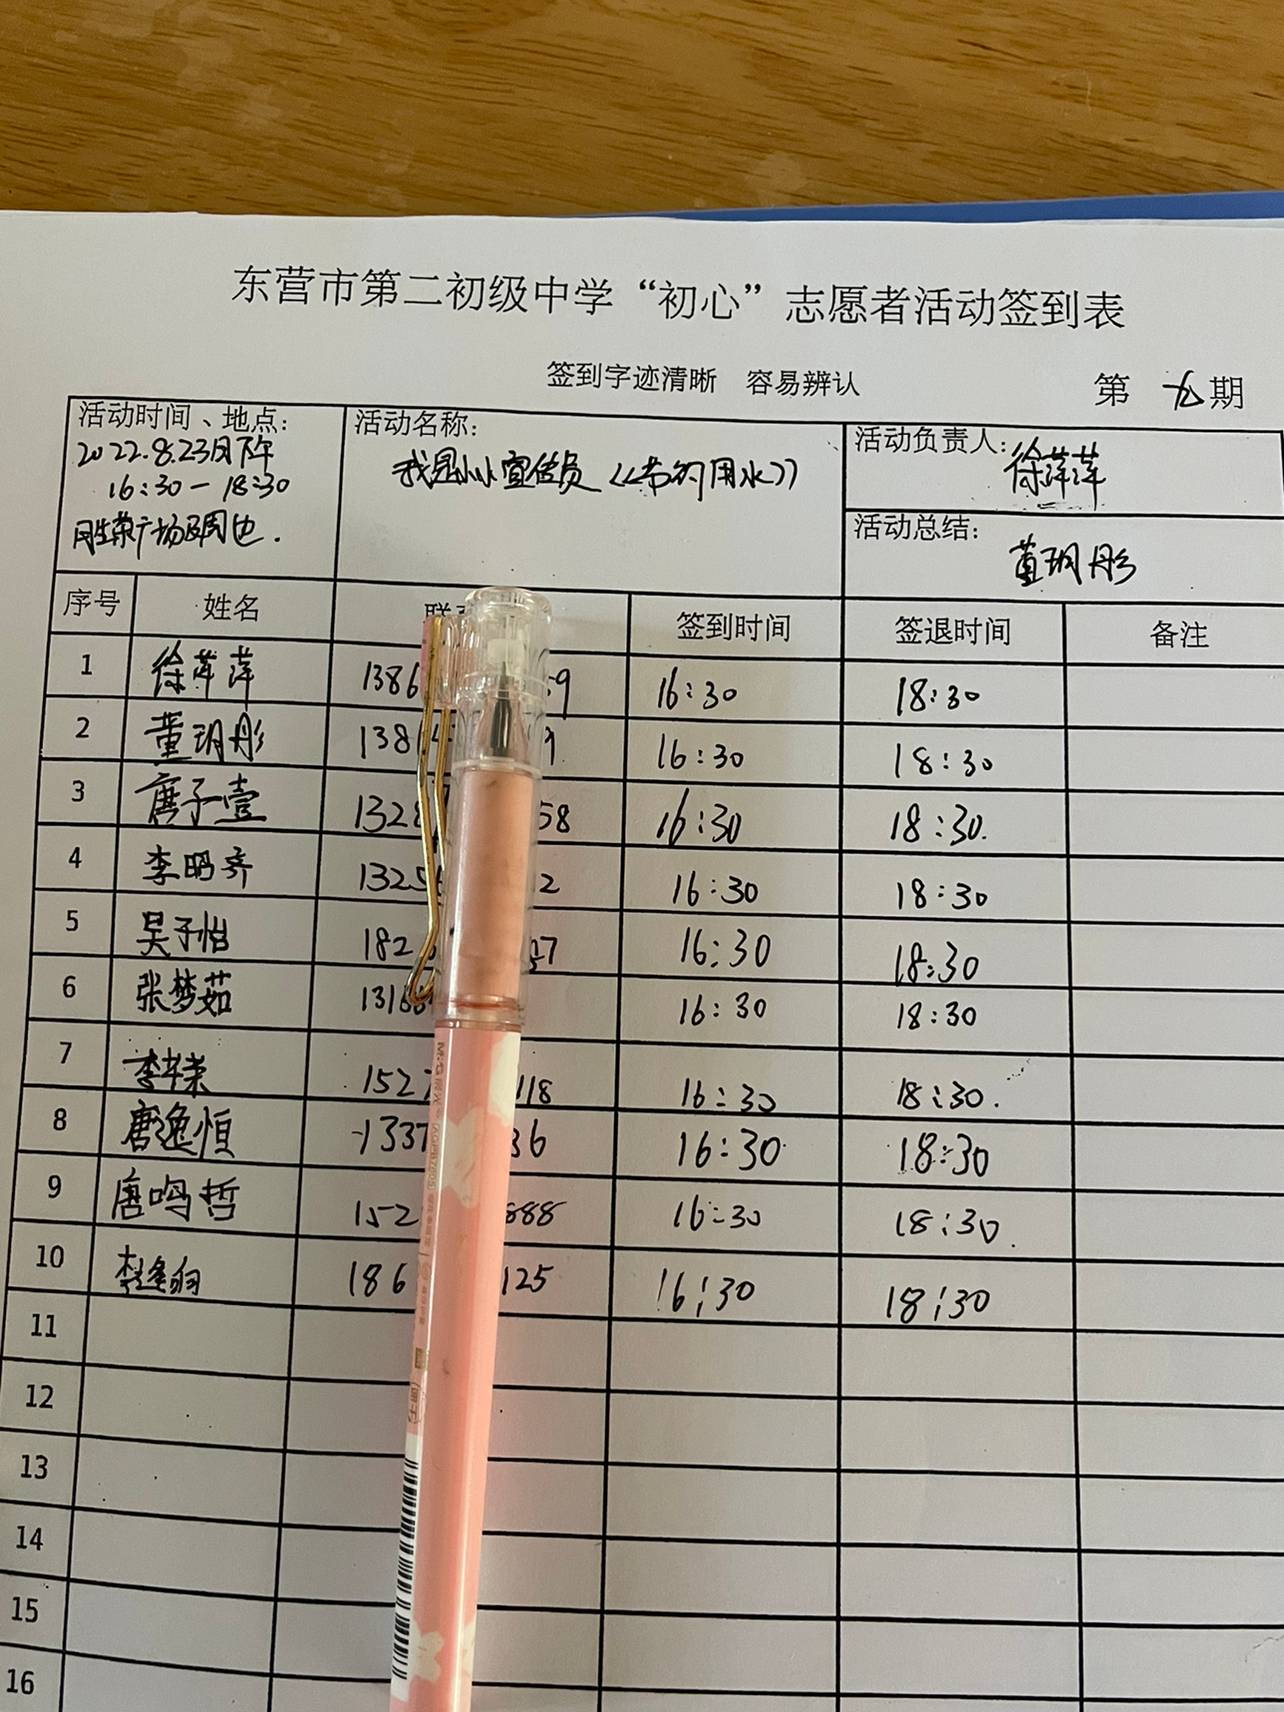 东营市第二初级中学“初心”志愿者活动签到表
签到字迹清晰 容易辨认 第 期
活动时间、地点: 活动名称: 活动负责人:
2022.8.23日下午 我是小小宣传员《节约用水》 徐萍萍
16:30-18:30
广场及周边. 活动总结:
董玥彤
序号 姓名 联 签到时间 签退时间 备注
1 徐萍萍 1386 59 16:30 18:30
2 董玥彤 138 9 16:30 18:30
3 唐子壹 1328 58 16:30 18:30.
4 李明齐 1325 2 16:30 18:30
5 吴子怡 182 7 16:30 18:30
6 张梦茹 1316 16:30 18:30
7 李 152 118 16:30 18:30.
8 唐逸恒 1337 36 16:30 18:30
9 唐鸣哲 152 888 16:30 18:30.
10 李 186 125 16:30 18:30
11
12
13
14
15
16